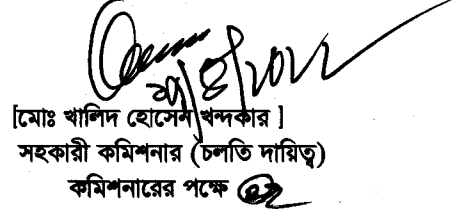 [মোঃ খালিদ হোসেন খন্দকার ]
সহকারী কমিশনার (চলতি দায়িত্ব)
কমিশনারের পক্ষে